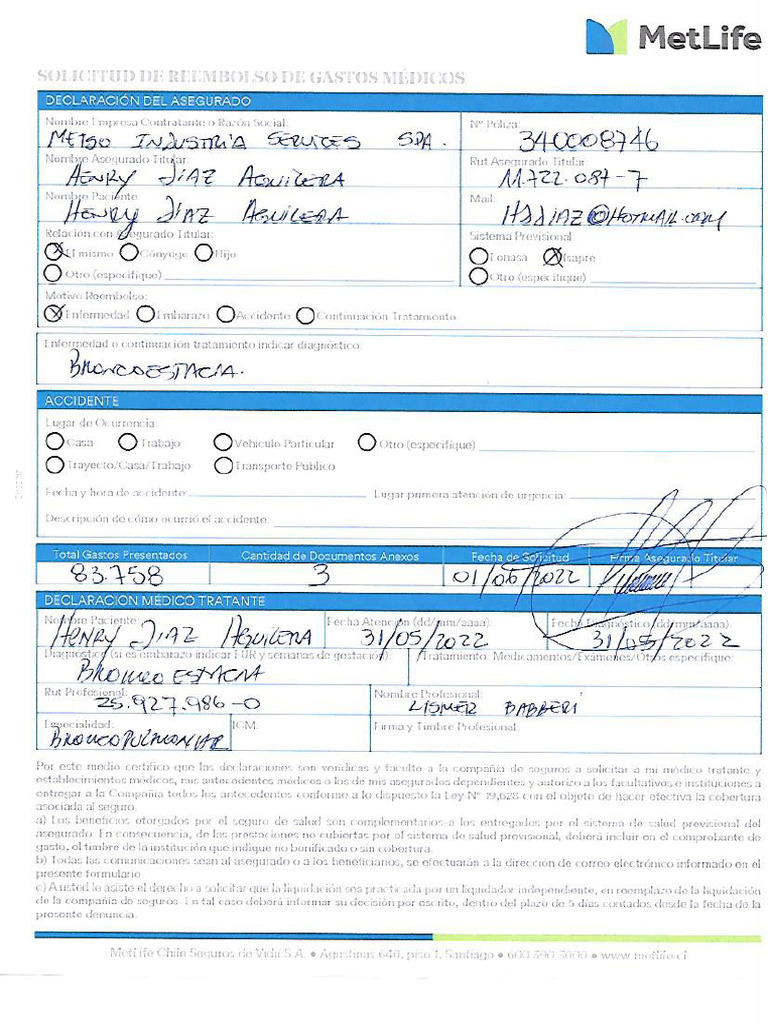 MetLife
SOLICITUD DE REEMBOLSO DE GASTOS MÉDICOS
DECLARACIÓN DEL ASEGURADO
Nombre Empresa Contratante o Razón Social: Nº Póliza:
METSO INDUSTRIA SERVICES SPA. 340008746
Nombre Asegurado Titular: Rut Asegurado Titular:
HENRY DIAZ AGUILERA 11.722.087-7
Nombre Paciente: Mail:
HENRY DIAZ AGUILERA @HOTMAIL.COM
Relación con Asegurado Titular: Sistema Previsional:
El mismo Cónyuge Hijo Fonasa Isapre
Otro (especifique) Otro (especifique)
Motivo Reembolso:
Enfermedad Embarazo Accidente Continuación Tratamiento
Enfermedad o continuación tratamiento indicar diagnóstico:
BRONCOESTACIA.
ACCIDENTE
Lugar de Ocurrencia:
Casa Trabajo Vehículo Particular Otro (especifique)
Trayecto/Casa/Trabajo Transporte Público
Fecha y hora de accidente: Lugar primera atención de urgencia:
Descripción de cómo ocurrió el accidente:
Total Gastos Presentados Cantidad de Documentos Anexos Fecha de Solicitud Firma Asegurado Titular
83.758 3 01/06/2022
DECLARACIÓN MÉDICO TRATANTE
Nombre Paciente: Fecha Atención (dd/mm/aaaa): Fecha Diagnóstico (dd/mm/aaaa):
HENRY DIAZ AGUILERA 31/05/2022 31/05/2022
Diagnóstico (si es embarazo indicar FUR y semanas de gestación): Tratamiento: Medicamentos/Exámenes/Otros especifique:
BRONCO ESTACIA
Rut Profesional: Nombre Profesional:
25.927.986-0 LISMER BABBERI
Especialidad: ICM: Firma y Timbre Profesional:
BRONCOPULMONAR
Por este medio certifico que las declaraciones son verídicas y faculto a la compañía de seguros a solicitar a mi médico tratante y
establecimientos médicos, mis antecedentes médicos o los de mis asegurados dependientes y autorizo a los facultativos e instituciones a
entregar a la Compañía todos los antecedentes conforme a lo dispuesto la Ley Nº 19,628 con el objeto de hacer efectiva la cobertura
asociada al seguro.
a) Los beneficios otorgados por el seguro de salud son complementarios a los entregados por el sistema de salud previsional del
asegurado. En consecuencia, de las prestaciones no cubiertas por el sistema de salud previsional, deberá incluir en el comprobante de
gasto, el timbre de la institución que indique no bonificado o sin cobertura.
b) Todas las comunicaciones sean al asegurado o a los beneficiarios, se efectuarán a la dirección de correo electrónico informado en el
presente formulario
c) A usted le asiste el derecho a solicitar que la liquidación sea practicada por un liquidador independiente, en reemplazo de la liquidación
de la compañía de seguros. En tal caso deberá informar su decisión por escrito, dentro del plazo de 5 días contados desde la fecha de la
presente denuncia.
MetLife Chile Seguros de Vida S.A. ● Agustinas 640, piso 1, Santiago ● 600 390 3000 ● www.metlife.cl